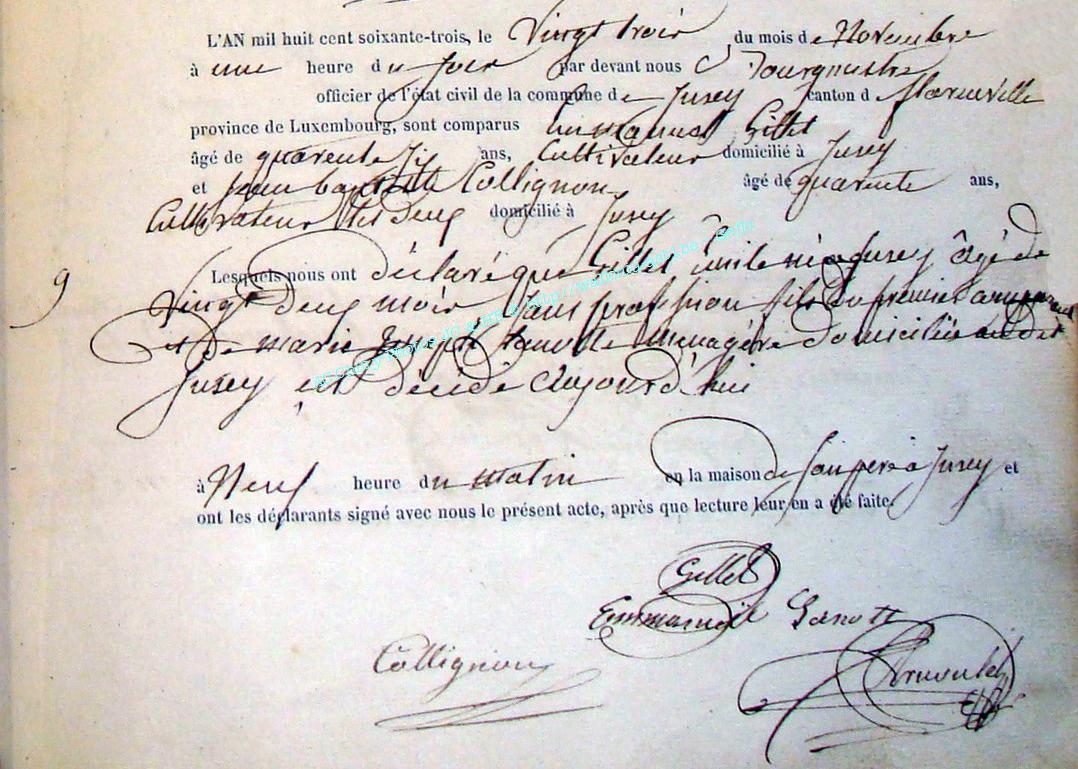 L'AN mil huit cent soixante-trois, le Vingt trois du mois de Novembre
à une heure du soir par devant nous Bourgmestre
officier de l'état civil de la commune de Jusey canton d
province de Luxembourg, sont comparus Emmanuel Gillet
âgé de quarente six ans, Cultivateur domicilié à Jusey
et Jean baptiste Collignon âgé de quarente ans,
Cultivateur les deux domicilié à Jusey
9 Lesquels nous ont déclaré que Gillet, émile né a Jusey âgé de
Vingt deux mois sans profession fils du premier comparant
et de marie Joseph ménagère domiciliée audit
Jusey est décédé aujourd'hui
à Neuf heure du matin en la maison de son pere à Jusey et
ont les déclarants signé avec nous le présent acte, après que lecture leur en a été faite.
Gillet
Emmanuel
Collignon